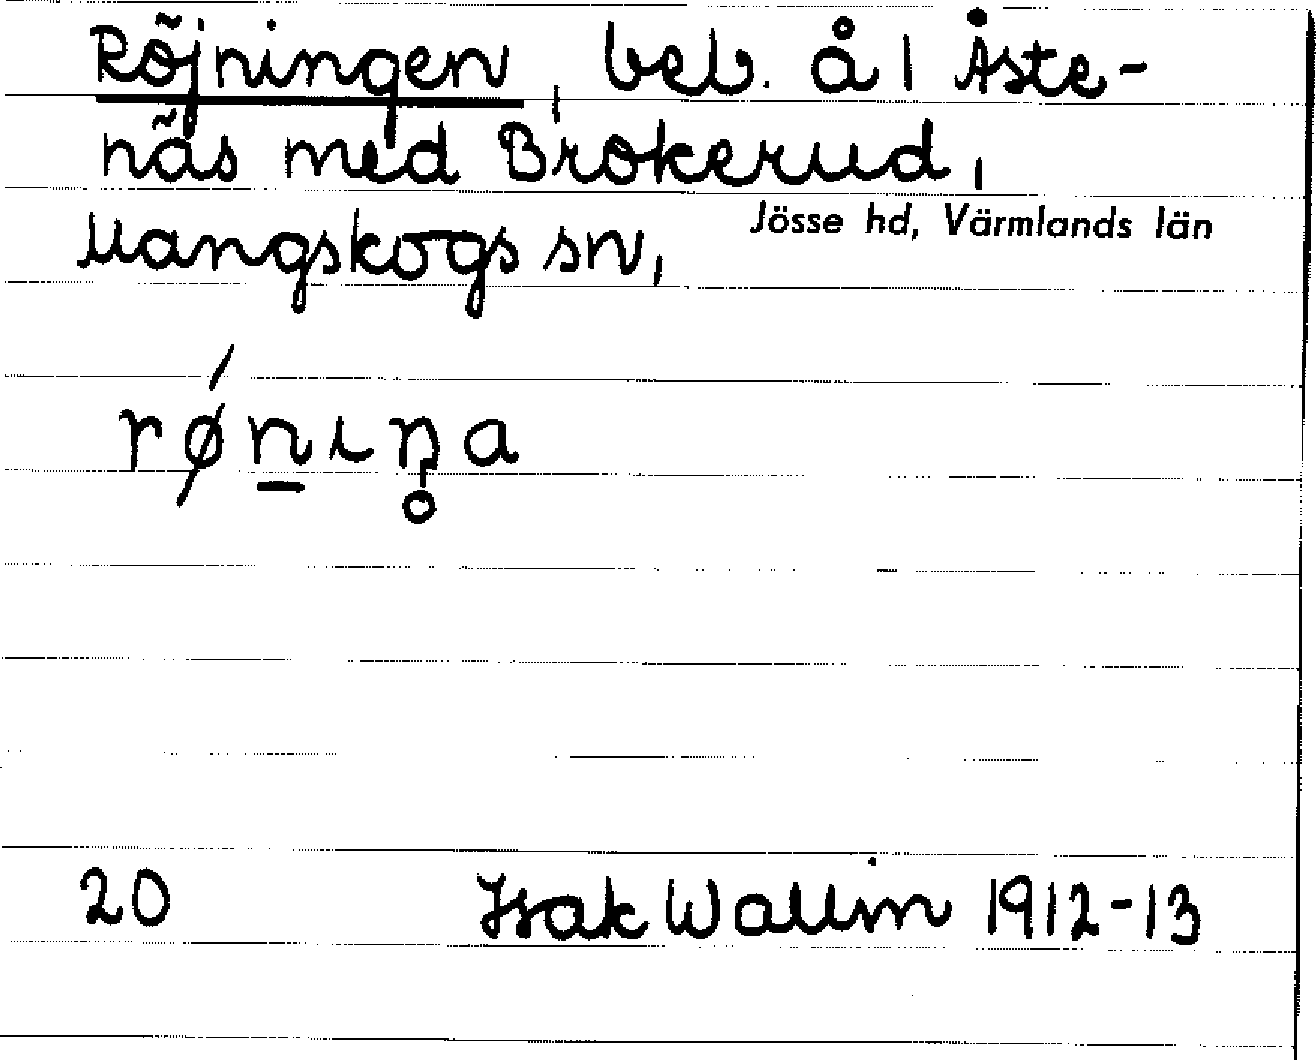 Röjningen, beb. å 1 Åste-
näs med Brokerud,
Mangskogs sn,
Jösse hd, Värmlands län
rǿn̲ıŋ̥a
20 Isak Wallin 1912-13